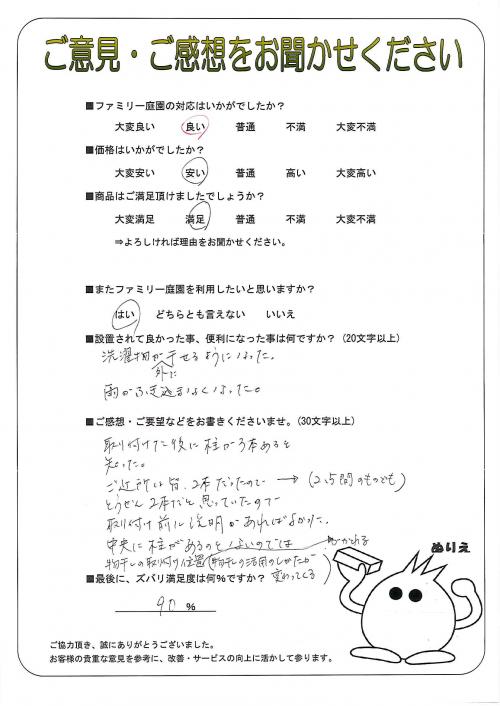 ご意見・ご感想をお聞かせください
■ファミリー庭園の対応はいかがでしたか？
大変良い 良い 普通 不満 大変不満
■価格はいかがでしたか？
大変安い 安い 普通 高い 大変高い
■商品はご満足頂けましたでしょうか？
大変満足 満足 普通 不満 大変不満
⇒よろしければ理由をお聞かせください。
■またファミリー庭園を利用したいと思いますか？
はい どちらとも言えない いいえ
■設置されて良かった事、便利になった事は何ですか？（20文字以上）
洗濯物が外に干せるようになった。
雨がふき込まなくなった。
■ご感想・ご要望などをお書きくださいませ。（30文字以上）
取り付けた後に柱が3本あると
知った。
ご近所は皆、2本だったので → (2、5間のものでも)
とうぜん2本だと思っていたので
取り付け前に説明があればよかった。
中央に柱があるのとないのでは
物干しの取付け位置(物干しの活用のしかたが
変わってくる)
■最後に、ズバリ満足度は何％ですか？
90 %
ぬりえ
ご協力頂き、誠にありがとうございました。
お客様の貴重な意見を参考に、改善・サービスの向上に活かして参ります。